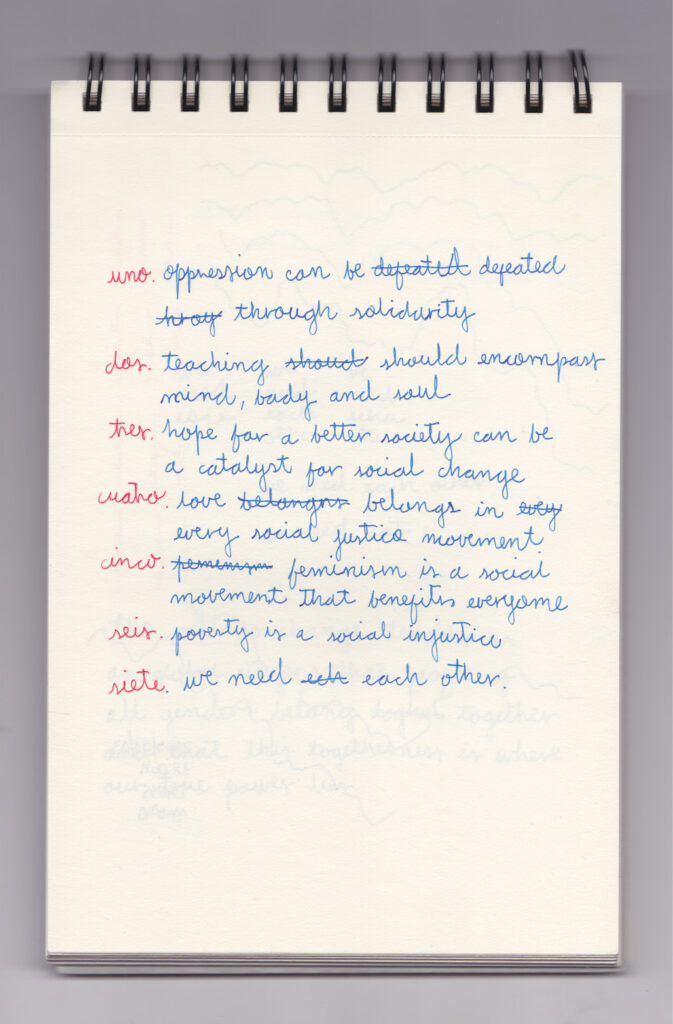 uno. oppression can be defeated defeated
hroy through solidurity
dos. teaching shoud should encompass
mind, body and soul
tres. hope for a better society can be
a catalyst for social change
cuatro. love belongns belongs in evey
every social justice movement
cinco. pemenism feminism is a social
movement that benefits everyone
seis. poverty is a social injustice
siete. we need ech each other.